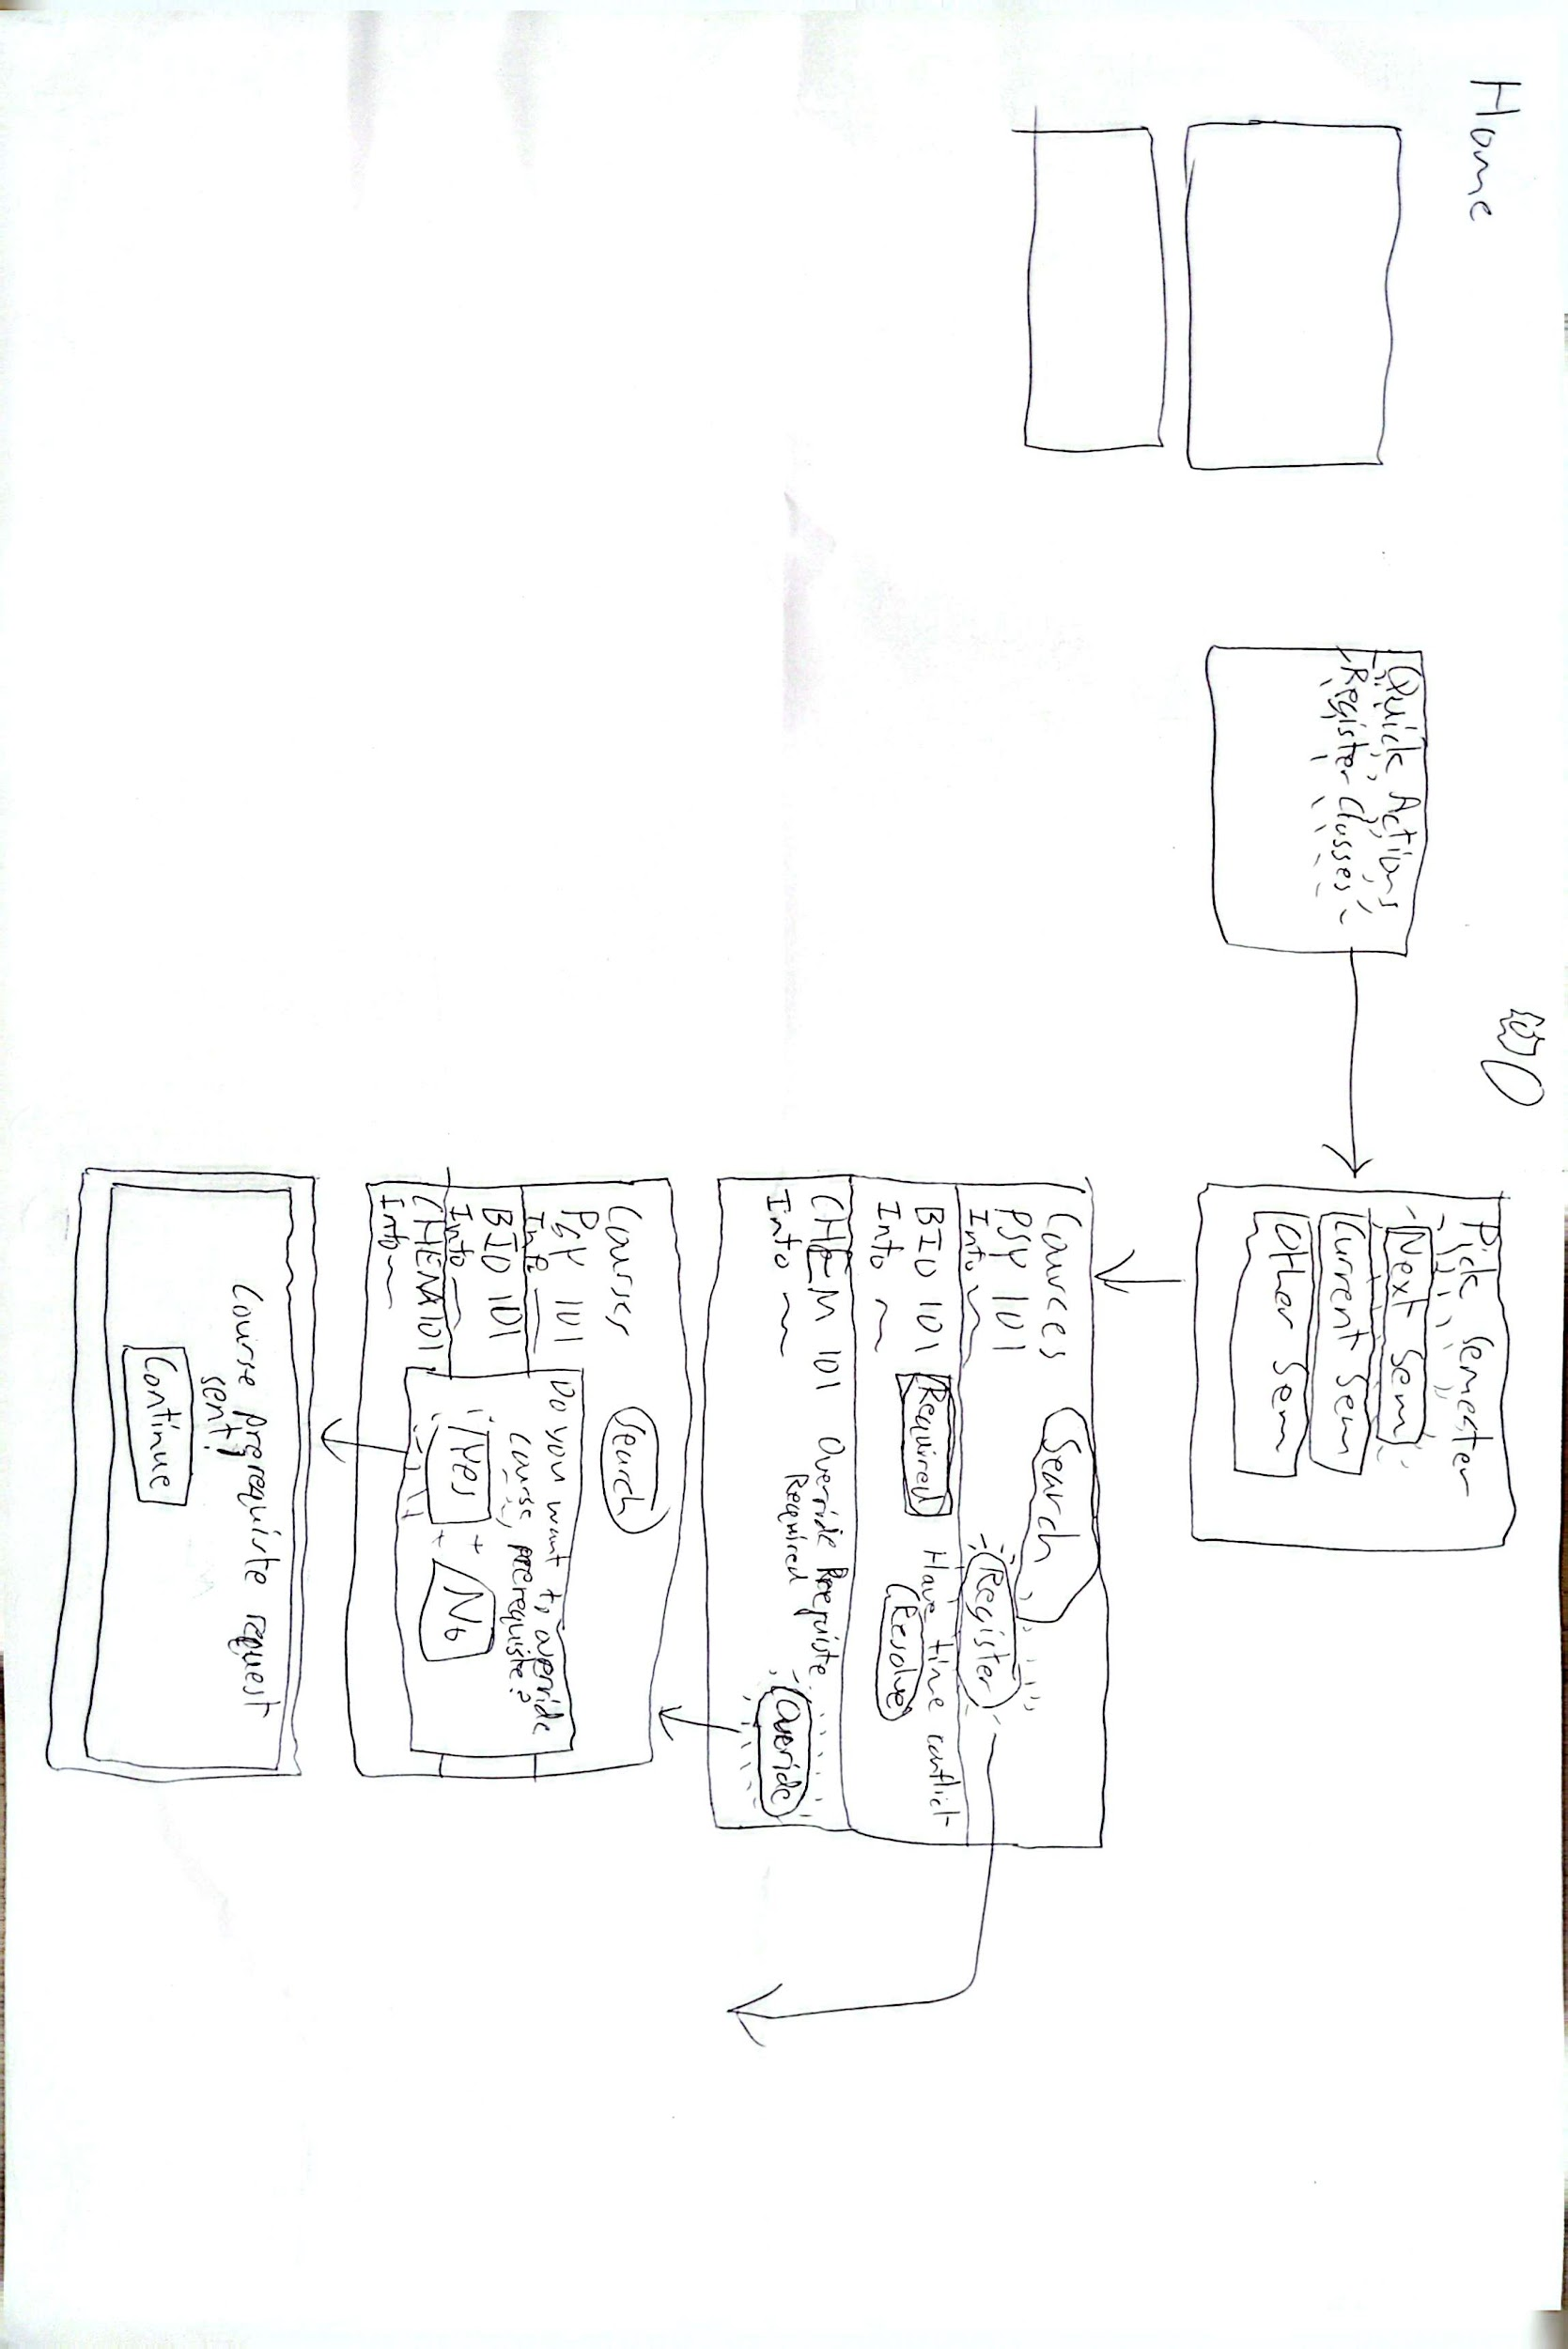 Home
Quick Actions
Register Classes
Pick Semester
Next Sem
Current Sem
Other Sem
Cources
Search
PSY 101
Info
Register
BIO 101
Required
Have time conflict
Info
Resolve
CHEM 101
Override Prerequiste
Required
Info
Override
Courses
Search
PSY 101
Info
BIO 101
Info
CHEM 101
Info
Do you want to override
course prerequiste?
Yes
No
Course prerequiste request
sent!
Continue